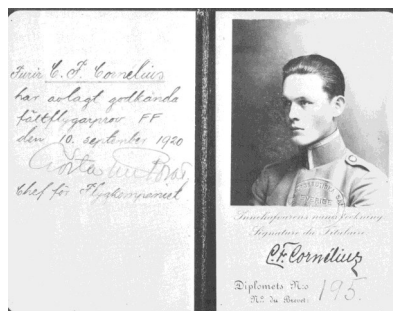 Furir C. F. Cornelius
har avlagt godkända
fältflygarprov FF
den 10. september 1920
Gösta von
Chef för Flygkompaniet
Innehavarens namnteckning
Signature du Titulaire
C.F. Cornelius
Diplomets N:o 195.
No. du Brevet: